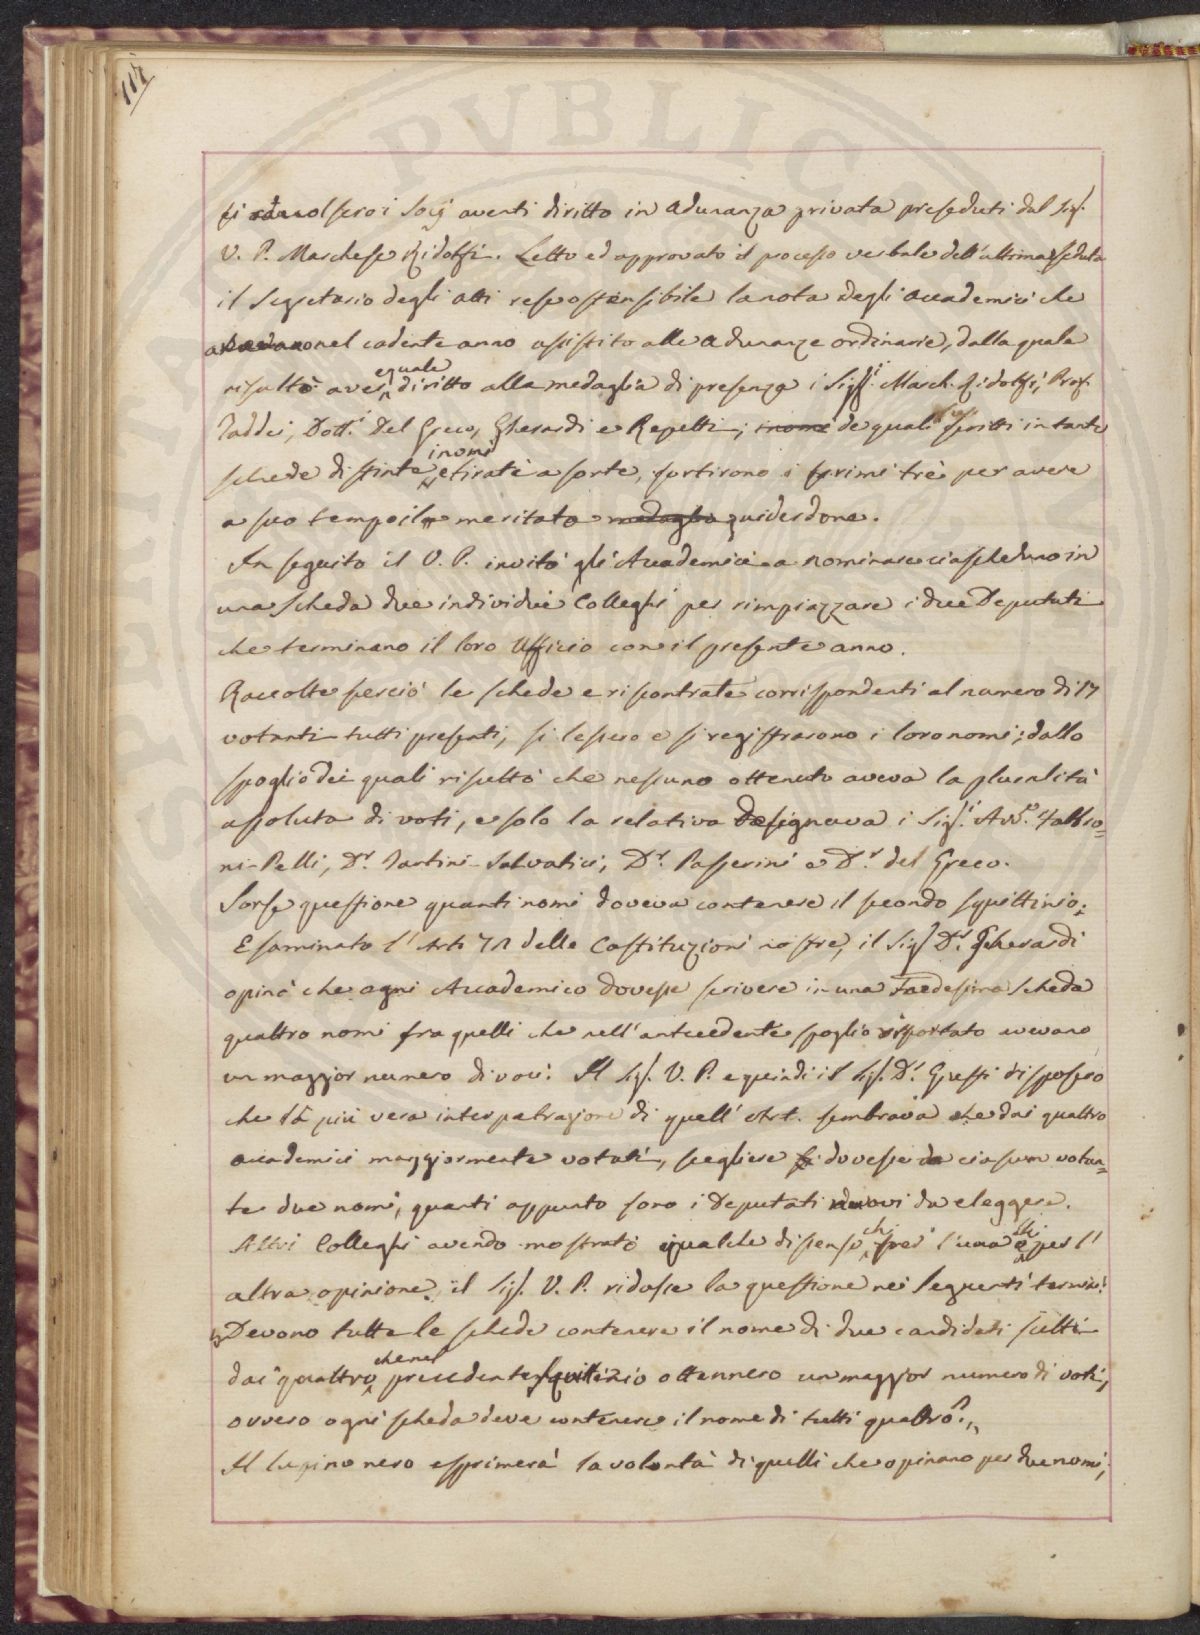 117
PVBLICA
si accolsero i Socj aventi diritto in adunanza privata preseduti dal Sig.
V. P. Marchese Ridolfi. Letto ed approvato il processo verbale dell'ultima seduta
il Segretario degli atti rese ostensibile la nota degli Accademici che
nel cadente anno assistito alle adunanze ordinarie, dalla quale
risultò aver eguale diritto alla medaglia di presenza i Sigg.i March. Ridolfi, Prof.
Taddei, Dott.i Del Greco, Gherardi e Repetti; i nomi de quali scritti in tante
schede distinte, i nomi e tirate a sorte, sortirono i primi trè per avere
a suo tempo il meritato medaglia guiderdone.
In seguito il V. P. invitò gli Accademici a nominare ciascheduno in
una scheda due individui Colleghi per rimpiazzare i due Deputati
che terminano il loro Ufficio con il presente anno.
Raccolte perciò le schede e riscontrate corrispondenti al numero di 17
votanti tutti presenti, si lessero e si registrarono i loro nomi; dallo
spoglio dei quali risultò che nessuno ottenuto aveva la pluralità
assoluta di voti, e solo la relativa designava i Sig.i Avv.o Fabbro=
ni-Pelli, D.r Tartini-Salvatici, D.r Passerini e D.r del Greco.
Sorse questione quanti nomi doveva contenere il secondo squittinio.
Esaminato l'Art. 71 delle Costituzioni nostre, il Sig. D.r Gherardi
opinò che ogni Accademico dovesse scrivere in una medesima scheda
quattro nomi fra quelli che nell'antecedente spoglio riportato avevano
un maggior numero di voti. Il Sig. V. P. e quindi il Sig. D.r Guessi risposero
che la più vera interpetrazione di quell'Art. sembrava che dai quattro
accademici maggiormente votati, scegliere si dovesse da ciascun votan=
te due nomi, quanti appunto sono i Deputati nuovi da eleggere.
Altri Colleghi avendo mostrato qualche dissenso chi per l'una e chi per l'
altra opinione, il Sig. V. P. ridusse la questione nei seguenti termini:
"Devono tutte le schede contenere il nome di due candidati scelti
dai quattro che nel precedente squittinio ottennero un maggior numero di voti,
ovvero ogni scheda deve contenere il nome di tutti quattro?"
Il lupino nero esprimerà la volontà di quelli che opinano per due nomi;